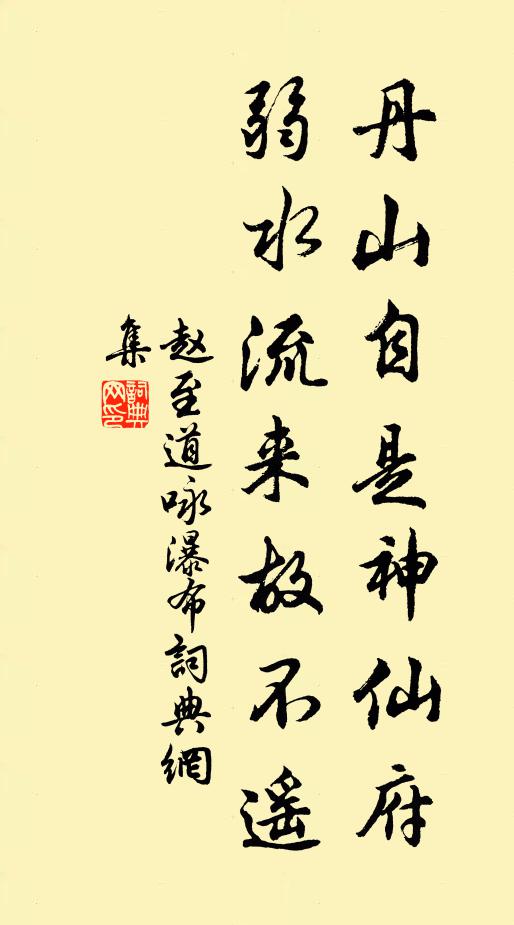 丹山自是神仙府
弱水流来故不遥
赵至道咏瀑布詞典網
集
詞典網印